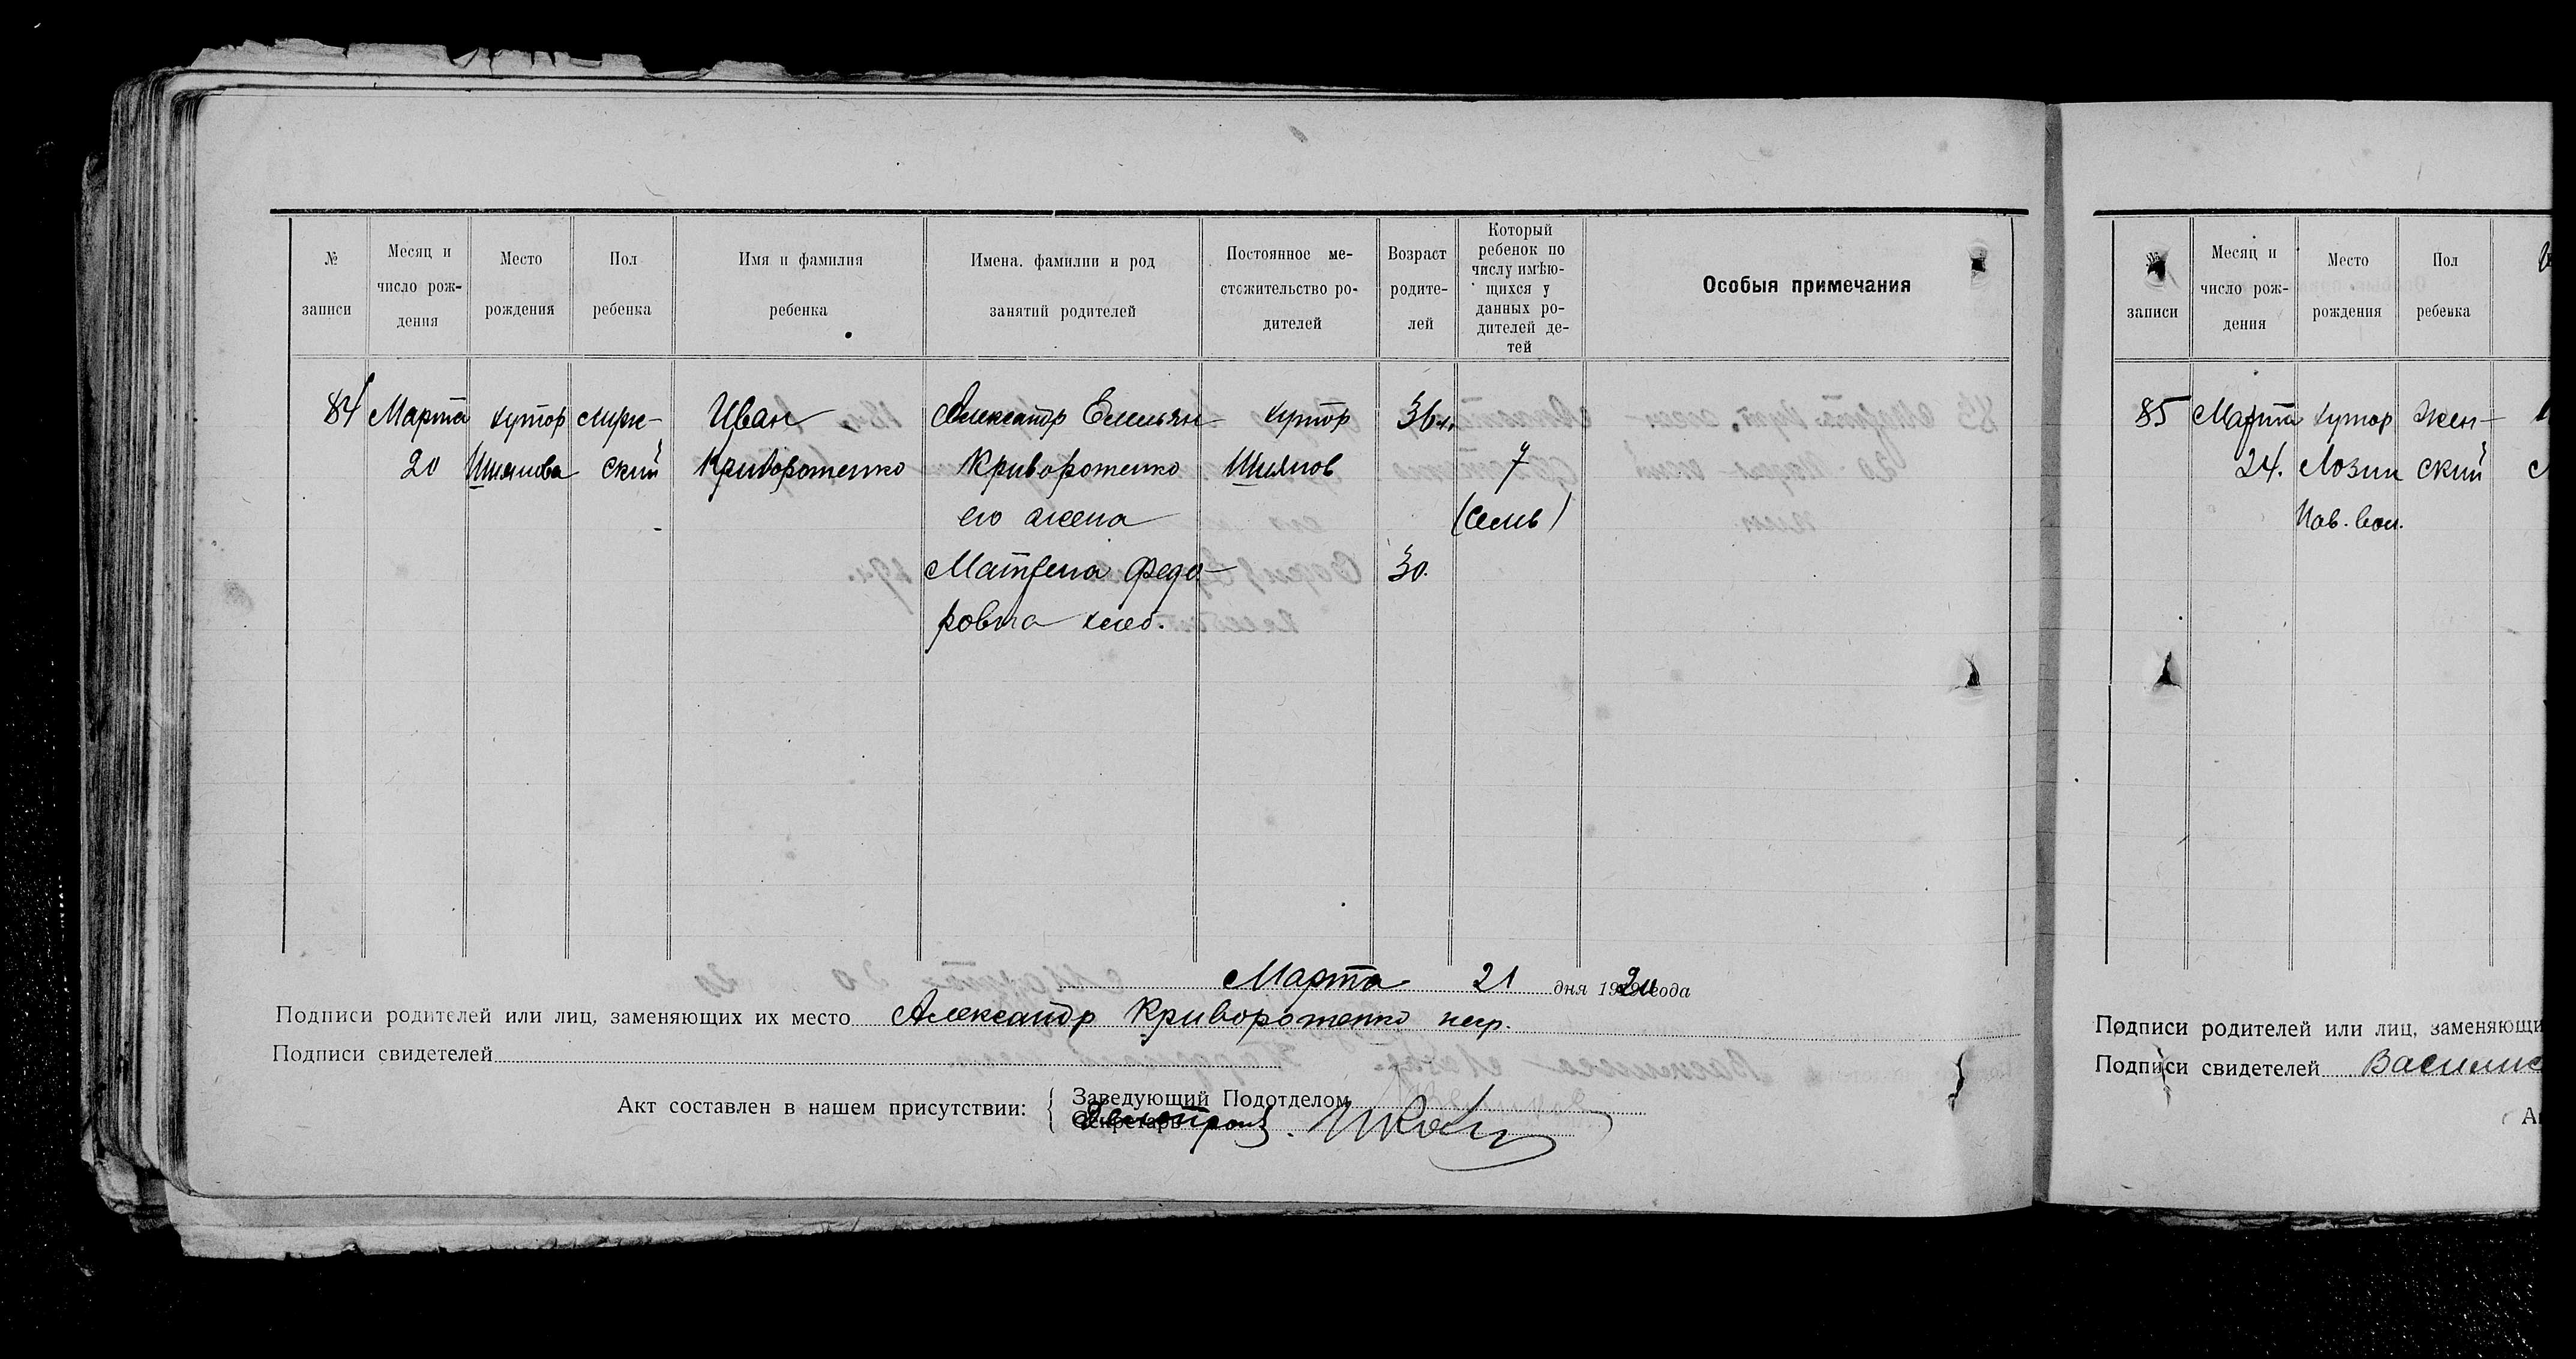 № записи
Месяц и число рож-дения
Место рождения
Пол ребенка
Имя и фамилия ребенка
Имена, фамилии и род занятий родителей
Постоянное ме-стожительство ро-дителей
Возраст родите-лей
Который ребенок по числу имѣю-щихся у данных ро-дителей де-тей
Особыя примечания
84 Марта хутор муж- Иван Александр Емельян- хутор 36 л.
20 Шиянова ский Криворотенко Криворотенко Шиянов 7
его жена (семь)
Матрена Федо- 30.
ровна хлеб.
Марта 21 дня 1920 года
Подписи родителей или лиц, заменяющих их место Александр Криворотенко негр.
Подписи свидетелей
Акт составлен в нашем присутствии:
Заведующий Подотделом
Секретарь
Делопроиз.
№ записи
Месяц и число рож-дения
Место рождения
Пол ребенка
85 Марта хутор жен-
24. Лозин ский
Пав. вол.
Подписи родителей или лиц, заменяющи
Подписи свидетелей Василис